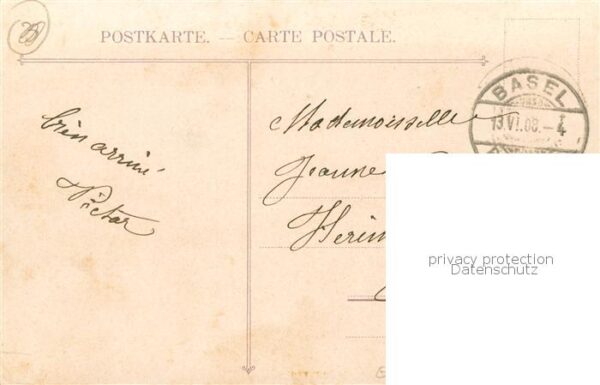 POSTKARTE. — CARTE POSTALE.
BASEL
13.VI.08.-4
bien arrivé
Victor
Mademoiselle
Jeanne
privacy protection
Datenschutz